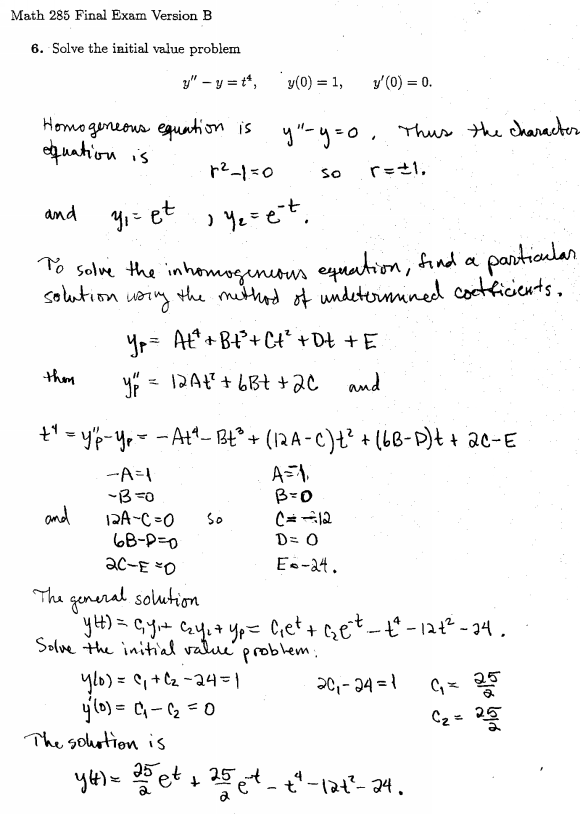 Math 285 Final Exam Version B
6. Solve the initial value problem
y'' − y = t⁴, y(0) = 1, y'(0) = 0.
Homogeneous equation is y''-y=0. Thus the character
equation is
r²-1=0 so r=±1.
and y₁=eᵗ, y₂=e⁻ᵗ.
To solve the inhomogeneous equation, find a particular
solution using the method of undetermined coefficients.
yₚ= At⁴+Bt³+Ct²+Dt+E
then yₚ'' = 12At²+6Bt+2C and
t⁴=yₚ''-yₚ= -At⁴-Bt³+(12A-C)t²+(6B-D)t+2C-E
-A=1 A=-1,
-B=0 B=0
and 12A-C=0 so C=-12
6B-D=0 D=0
2C-E=0 E=-24.
The general solution
y(t)=c₁y₁+c₂y₂+yₚ= c₁eᵗ+c₂e⁻ᵗ-t⁴-12t²-24.
Solve the initial value problem:
y(0)= c₁+c₂-24=1 2c₁-24=1 c₁= 25/2
y'(0)= c₁-c₂=0 c₂= 25/2
The solution is
y(t)= 25/2 eᵗ + 25/2 e⁻ᵗ - t⁴-12t²-24.